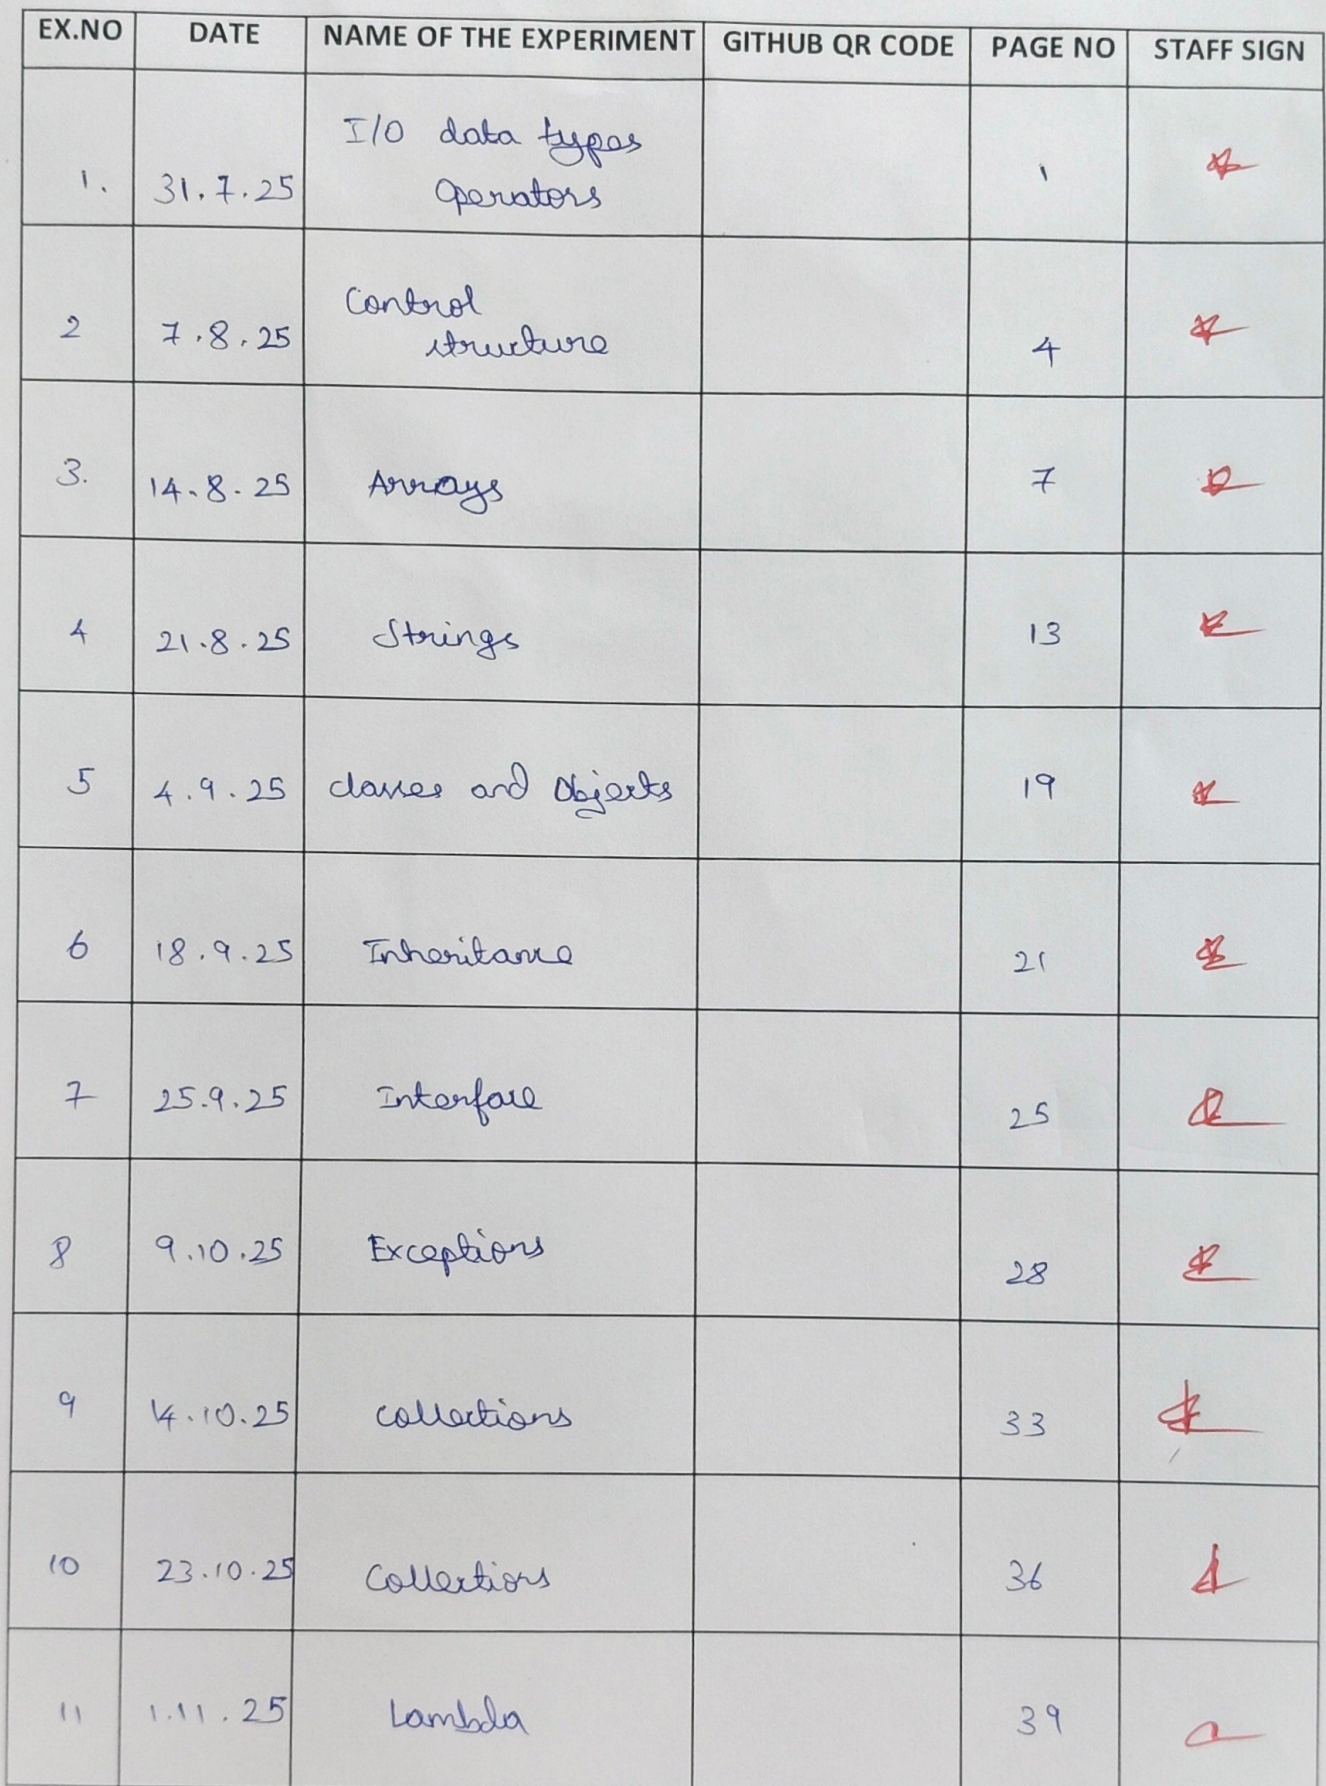 EX.NO DATE NAME OF THE EXPERIMENT GITHUB QR CODE PAGE NO STAFF SIGN
I/O data types
1. 31.7.25 Operators 1
Control
2 7.8.25 structure 4
3. 14.8.25 Arrays 7
4 21.8.25 Strings 13
5 4.9.25 classes and Objects 19
6 18.9.25 Inheritance 21
7 25.9.25 Interface 25
8 9.10.25 Exceptions 28
9 14.10.25 collections 33
10 23.10.25 Collections 36
11 1.11.25 Lambda 39